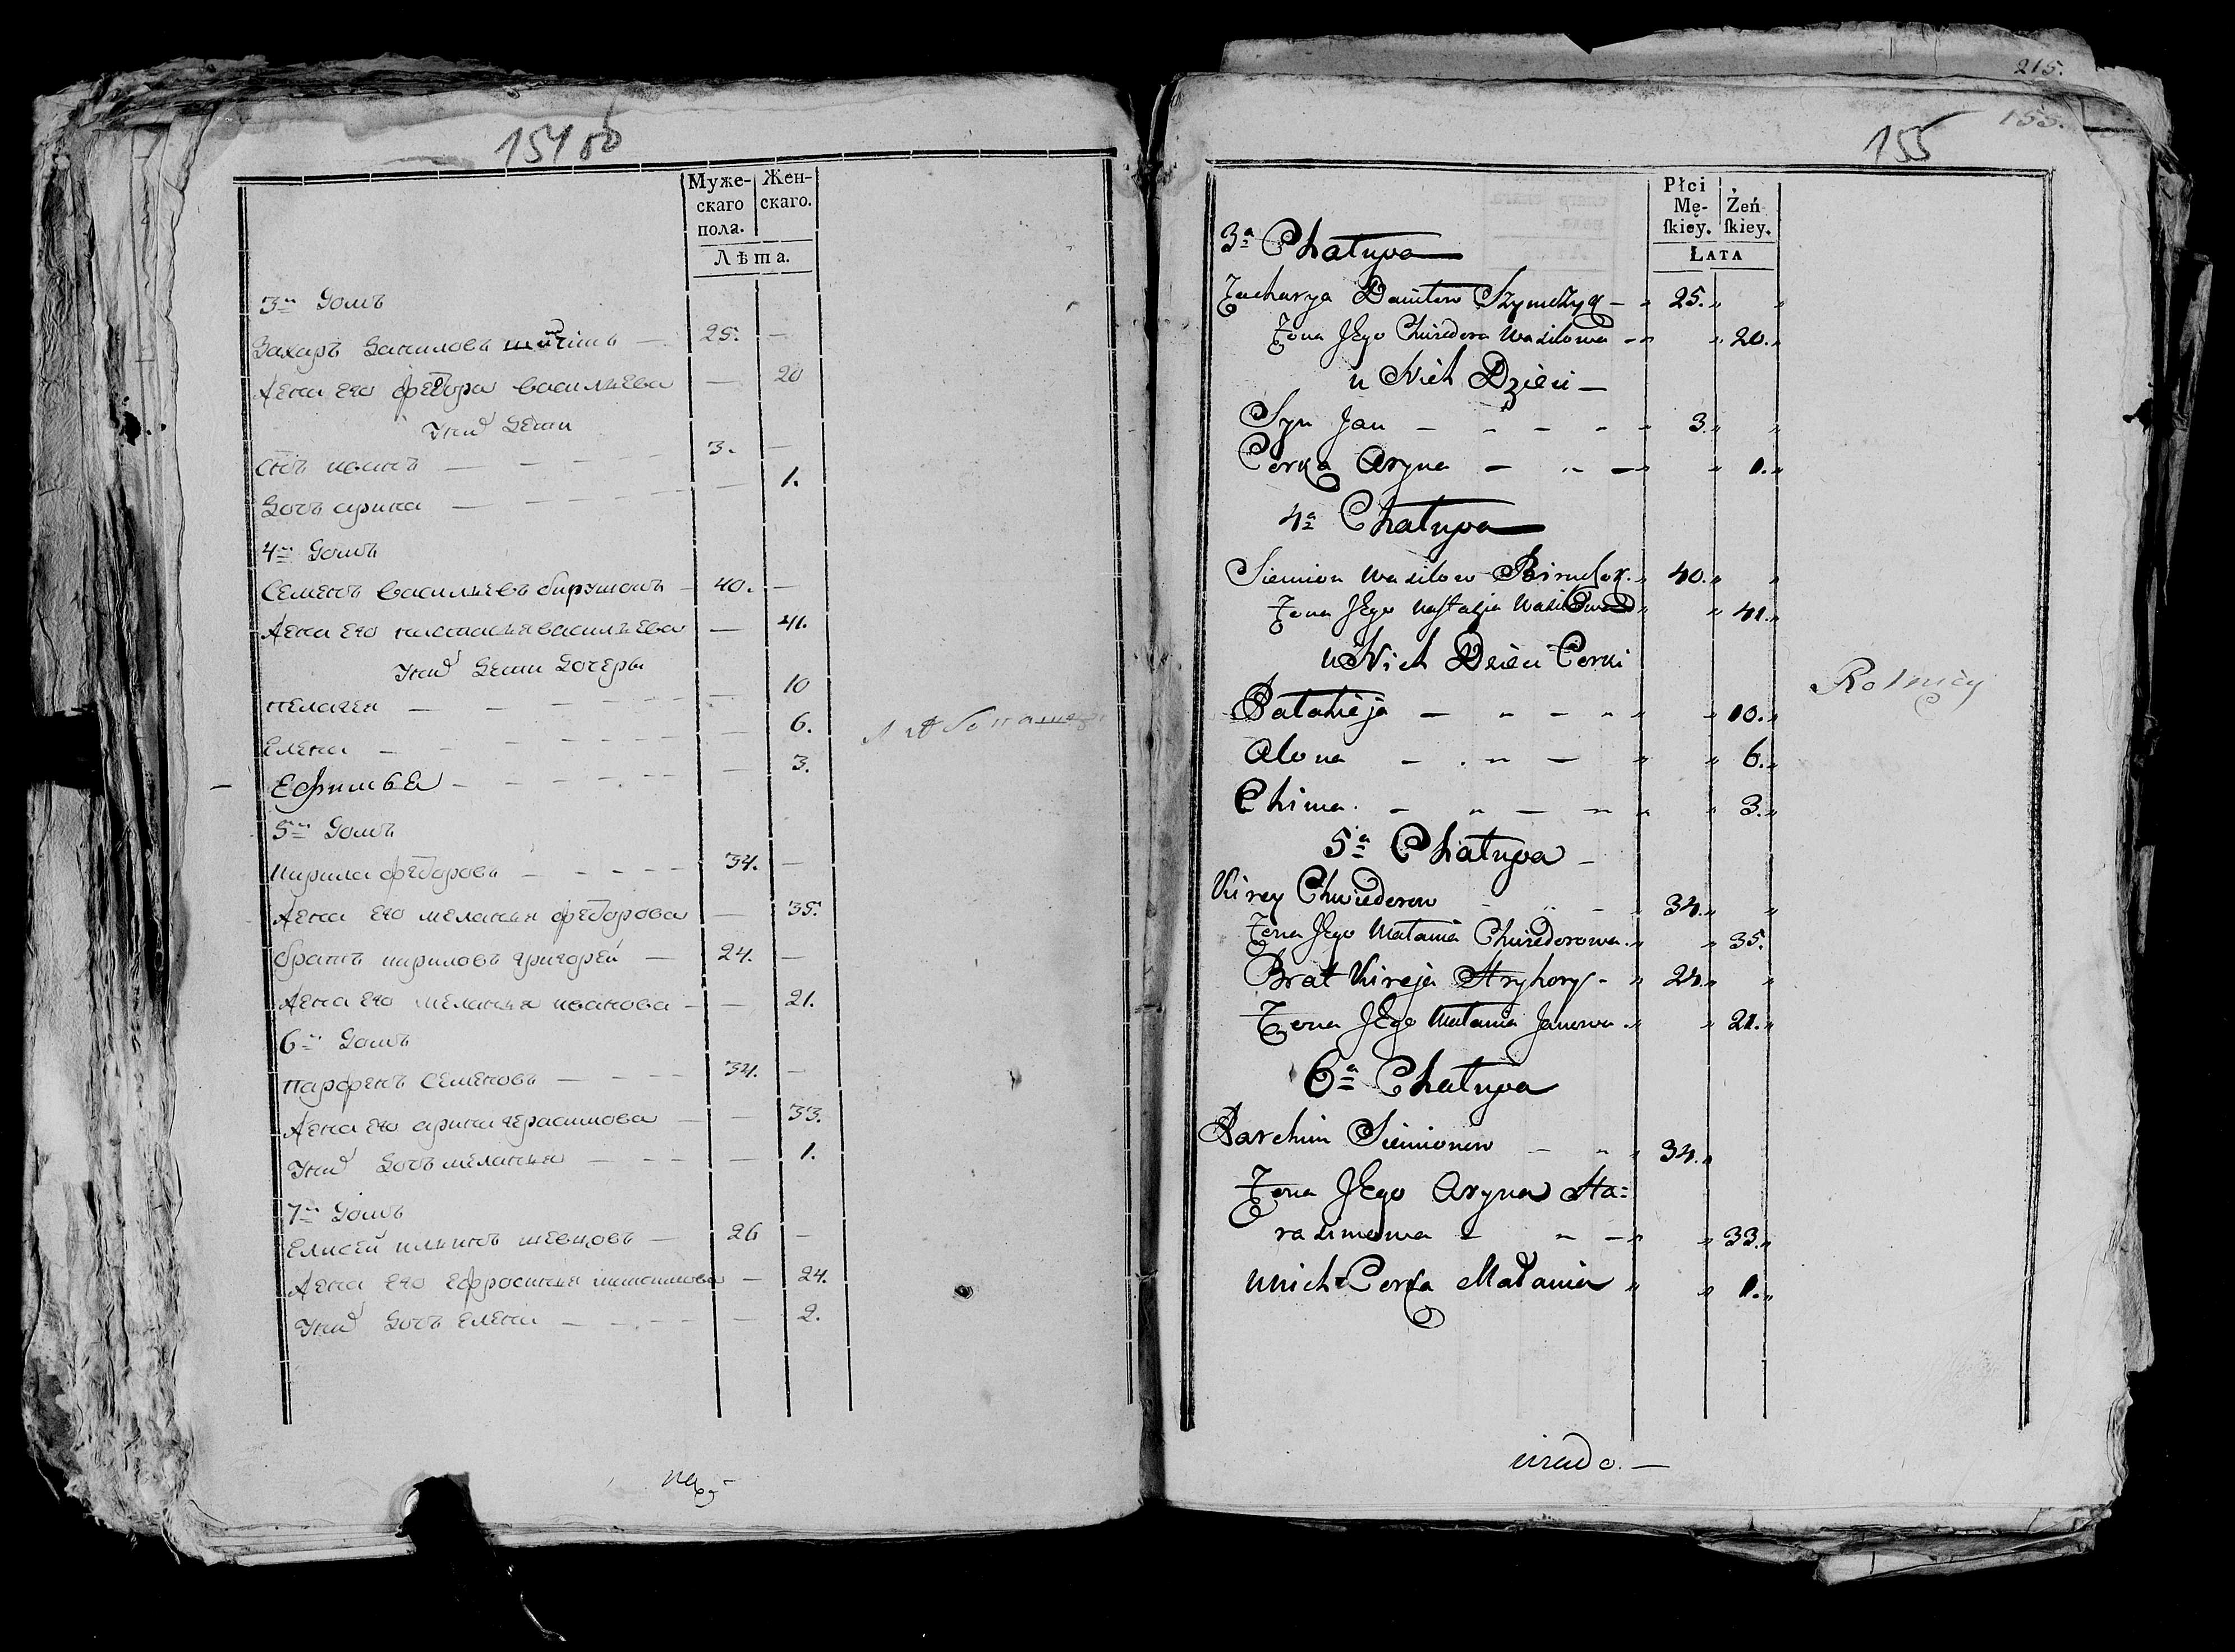 154 об
Муже-
скаго
пола.
Жен-
скаго.
Лѣта.
3й домъ
Захаръ Даниловъ — 25. —
Жена его федора васильева — 20
У них дети
сн҃ъ иванъ — 3. —
Дочь арина — 1.
4й домъ
Семенъ васильевъ бирушокъ — 40. —
Жена его настасья васильева — 41.
У них дети дочеръи
пелагея — 10
Елена — 6.
Ефимья — 3.
Хлебопашцы
5й домъ
кирила федоровъ — 34. —
Жена его меланья федорова — 35.
братъ кириловъ григорей — 24. —
Жена его меланья иванова — 21.
6й домъ
парфенъ Семеновъ — 34. —
Жена его арина герасимова — 33.
У них дочь меланья — 1.
7й домъ
Елисей ильинъ шевцовъ — 26 —
Жена его ефросинья — 24.
У них дочь Елена — 2.
215.
155.
155
Płci
Mę-
ſkiey.
Żeń
ſkiey.
Łata
3a Chałupa
Zacharya Daniłow Szymczyk — 25. „
Żona JEgo Chwiedora Wasilowa — „ 20.
u Nich Dzieci —
Syn Jan — 3. „
Corka Aryna — „ 1.
4a Chałupa
Siemion Wasilow Biruszok „ 40. „
Żona JEgo Nastazja Wasilowa „ 41.
u Nich Dzieci Corki
Pałahieja — „ 10.
Alona — „ 6.
Chima — „ 3.
Rolnicy
5a Chałupa
Kirey Chwiedorow — 34. „
Żona JEgo Małania Chwiedorowa „ 35.
Brat Kireja Hryhory — 24. „
Żona JEgo Małania Janowa „ 21.
6a Chałupa
Parchim Siemionow — 34.
Żona JEgo Aryna Ha=
rasimowa — „ 33.
u nich Corka Małania „ 1.